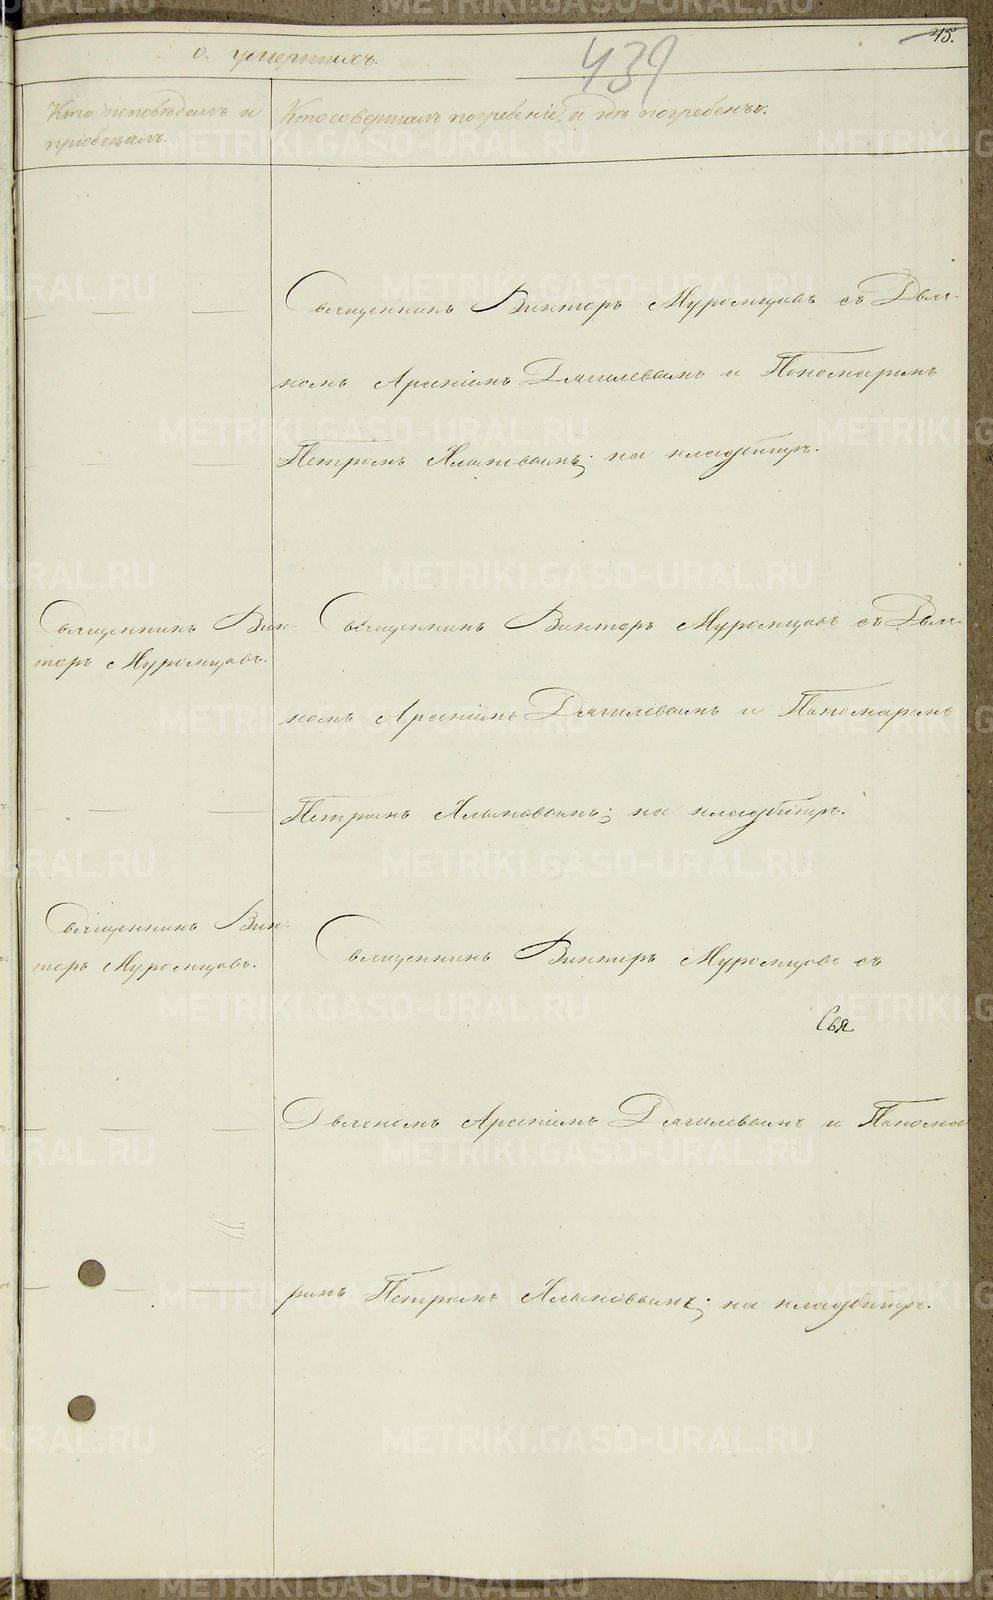 45.
439
о умершихъ.
Кто исповѣдалъ и
пріобщалъ.
Кто совершалъ погребеніе, и гдѣ погребенъ.
Священникъ Викторъ Муромцовъ съ Дья-
кономъ Арсеніемъ Дягилевымъ и Пономаремъ
Петромъ на кладбищѣ.
Священникъ Вик-
торъ Муромцовъ.
Священникъ Викторъ Муромцовъ съ Дья-
кономъ Арсеніемъ Дягилевымъ и Пономаремъ
Петромъ на кладбищѣ.
Священникъ Вик-
торъ Муромцовъ.
Священникъ Викторъ Муромцовъ съ
Свя
Дьякономъ Арсеніемъ Дягилевымъ и Понома
ремъ Петромъ на кладбищѣ.
METRIKI.GASO-URAL.RU